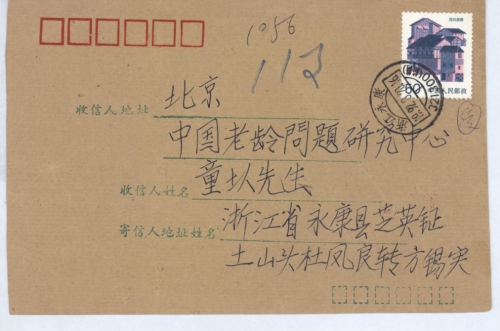 1056
113
收信人地址 北京
中国老龄問題研究中心
收信人姓名 童圦先生
寄信人地址姓名 浙江省永康县芝英鉦
土山头杜风良转方錫实
80 中国人民邮政
浙江 永康
321300